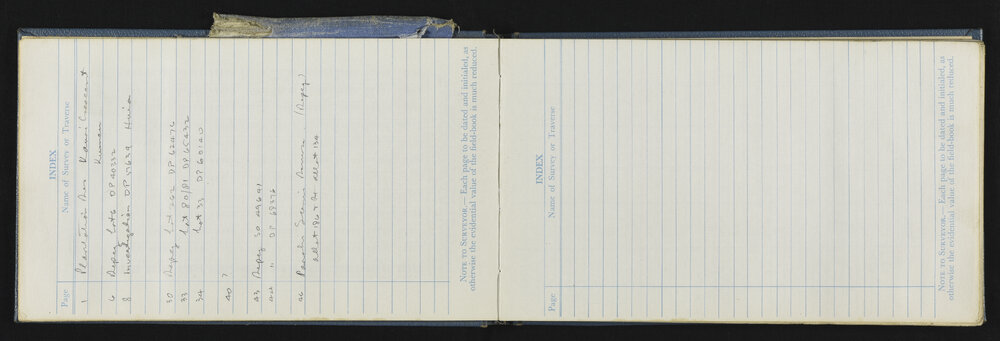 INDEX
Page Name of Survey or Traverse
1 Plantation Ave Kauri Crescent
6 Repeg Lot 6 DP 40332
8 Investigation DP 37639 Huia
30 Repeg Lot 262 DP 62476
33 Lot 80/81 DP
34 Lot 33 DP 60140
40 ?
43 Repeg SO 49691
44 " DP 68376
46 (Repeg)
Allot 186 & Allot 134
NOTE TO SURVEYOR.— Each page to be dated and initialed, as
otherwise the evidential value of the field-book is much reduced.
INDEX
Page Name of Survey or Traverse
NOTE TO SURVEYOR.— Each page to be dated and initialed, as
otherwise the evidential value of the field-book is much reduced.